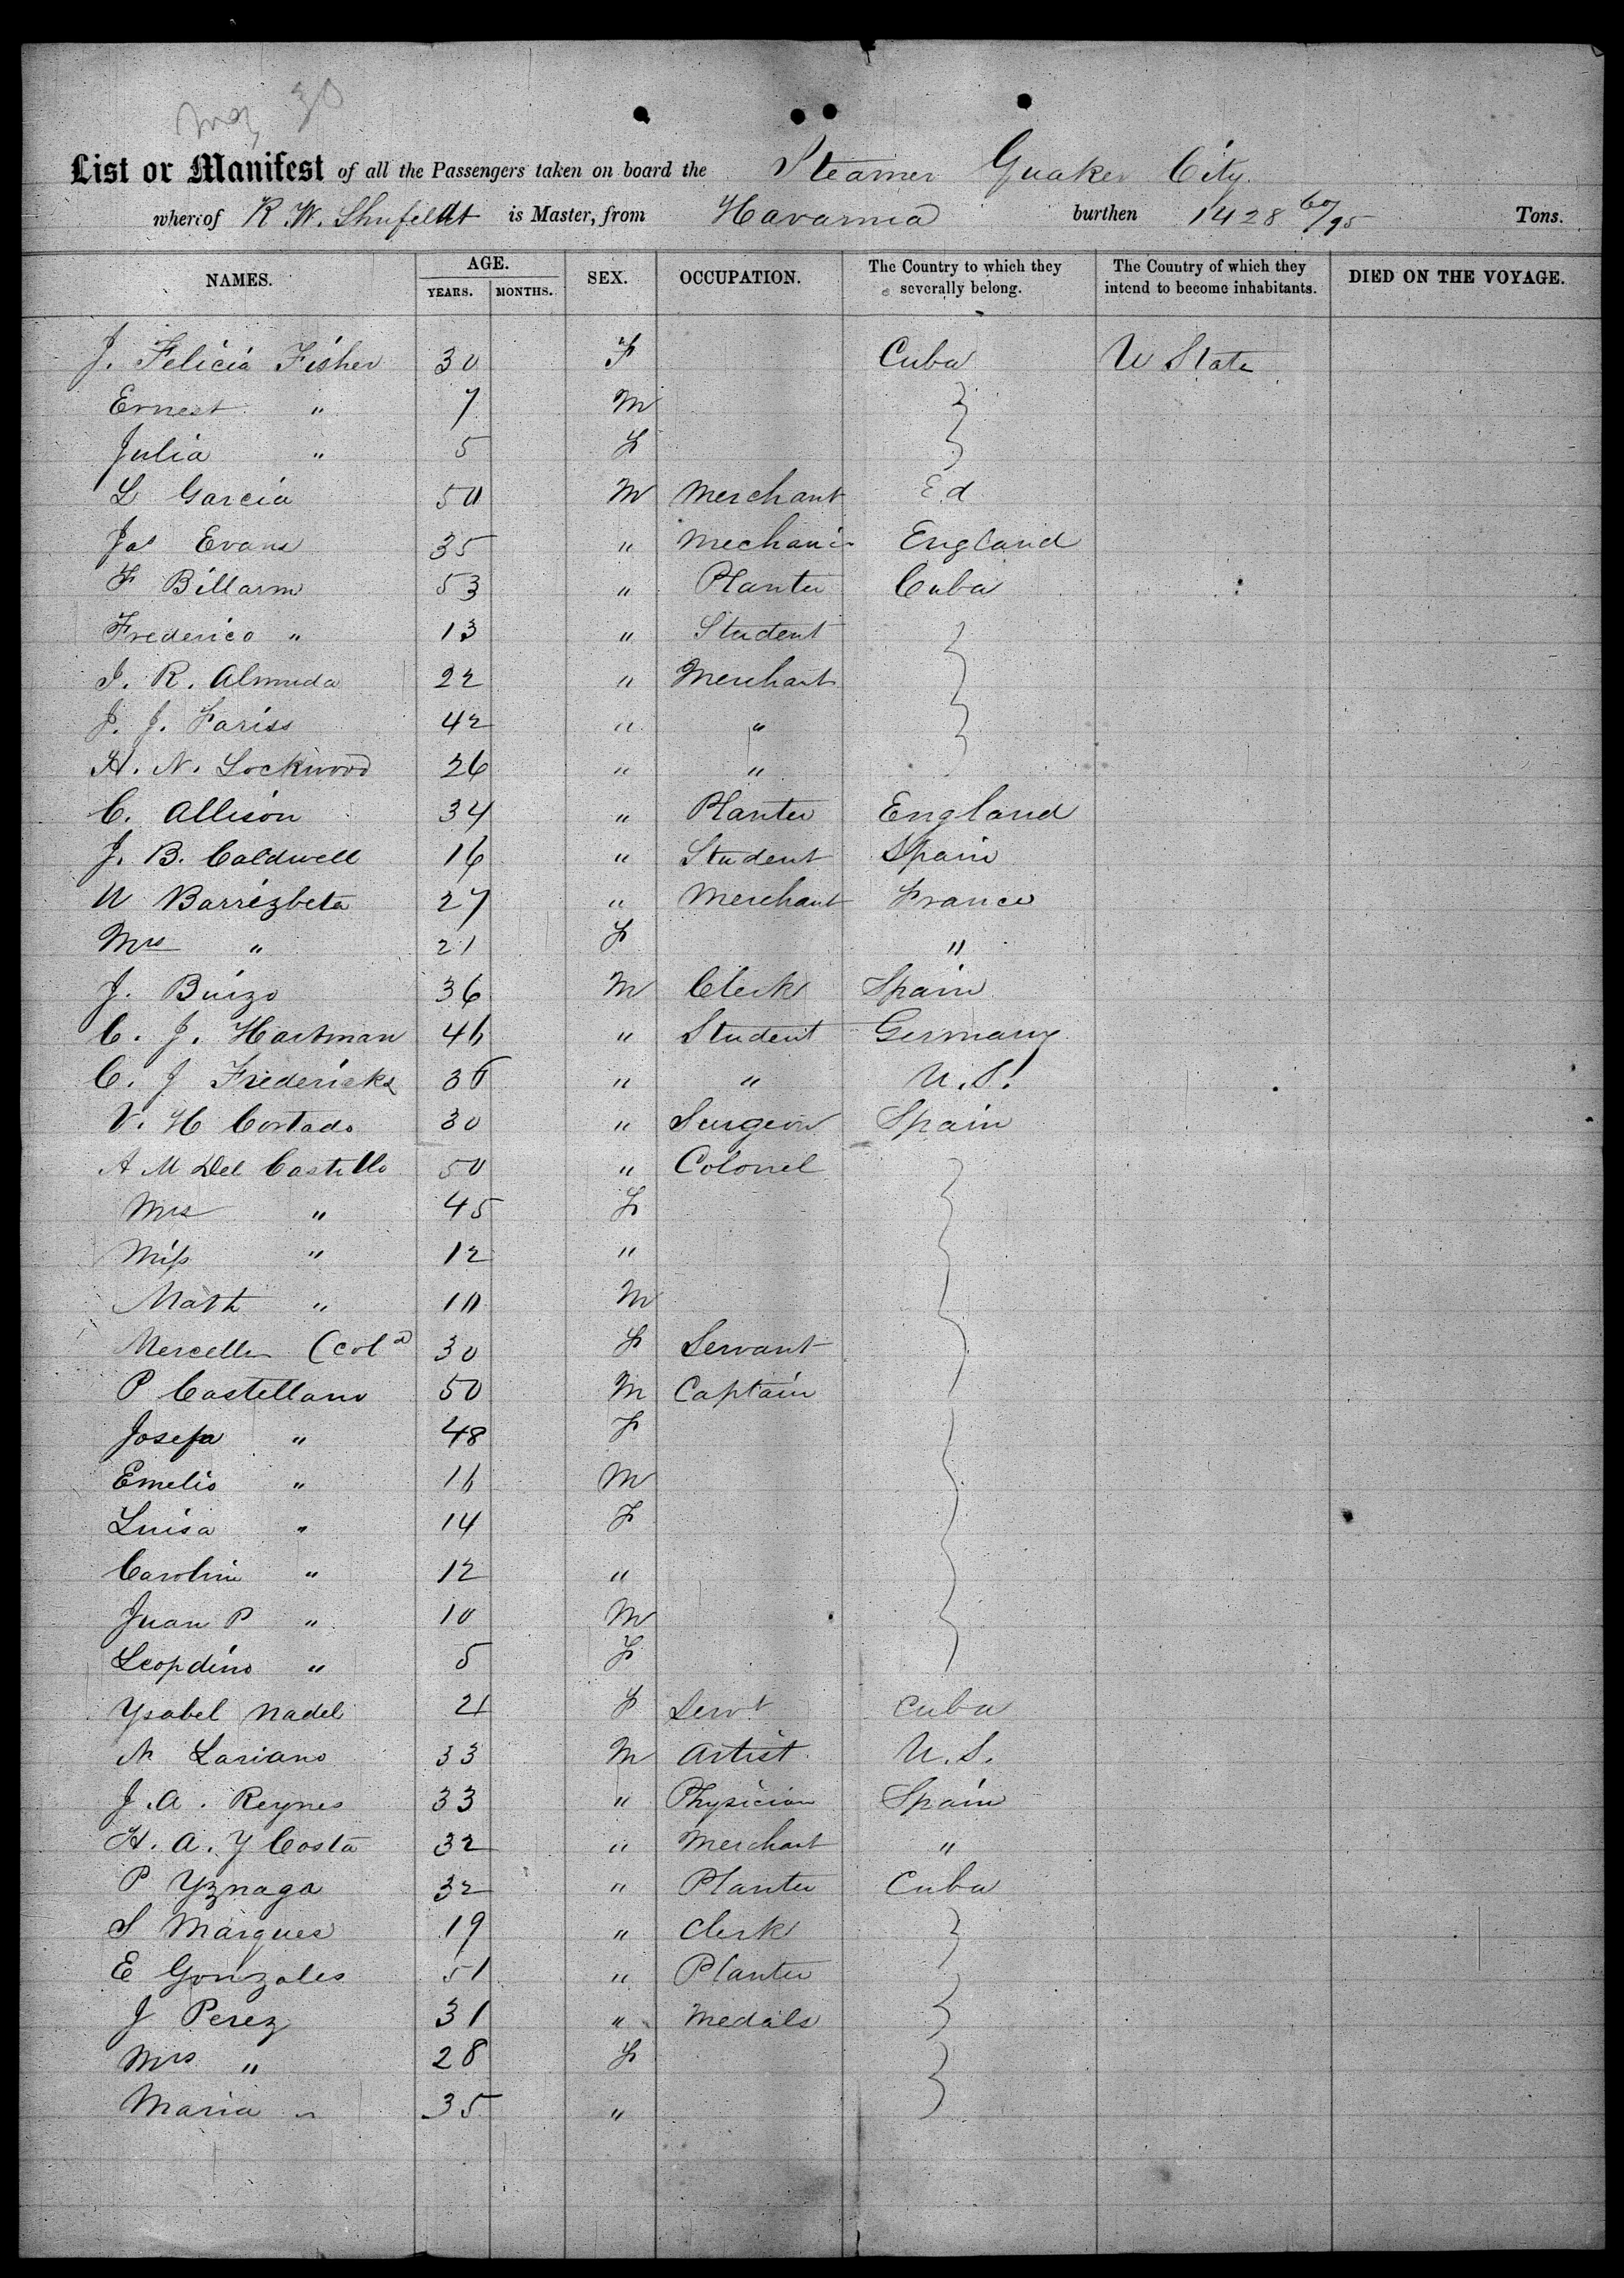 May 30
List or Manifest of all the Passengers taken on board the Steamer Quaker City
whereof R. W. Shufeldt is Master, from Havanna burthen 1428 60/95 Tons.
NAMES. AGE. YEARS. MONTHS. SEX. OCCUPATION. The Country to which they severally belong. The Country of which they intend to become inhabitants. DIED ON THE VOYAGE.
J. Felicia Fisher 30 F Cuba U State
Ernest " 7 M
Julia " 5 F
L Garcia 50 M Merchant
Jas Evans 35 " Mechanic England
F Billarm 53 " Planter Cuba
Frederico " 13 " Student
J. R. Almuda 22 " Merchant
J. J. Fariss 42 " "
H. N. Lockwood 26 " "
C. Allison 34 " Planter England
J. B. Caldwell 16 " Student Spain
U Barrezbeta 27 " Merchant France
Mrs " 21 F "
J. Buizo 36 M Clerk Spain
C. J. Hartman 46 " Student Germany
C. J Fredericks 36 " " U.S.
V. H Cortado 30 " Surgeon Spain
A M Del Castillo 50 " Colonel
Mrs " 45 F
Miss " 12 "
Mast " 10 M
Mercelle (cold 30 F Servant
P Castellano 50 M Captain
Josefa " 48 F
Emelio " 16 M
Luisa " 14 F
Carolin " 12 "
Juan P " 10 M
Leopdino " 5 F
Ysabel Nadel 21 F Servt Cuba
N Lariano 33 M Artist U.S.
J. A. Reynes 33 " Physician Spain
H. A. Y Costa 32 " Merchant "
P Yznaga 32 " Planter Cuba
S Marques 19 " Clerk
E Gonzales 51 " Planter
J Perez 31 "
Mrs " 28 F
Maria " 35 "